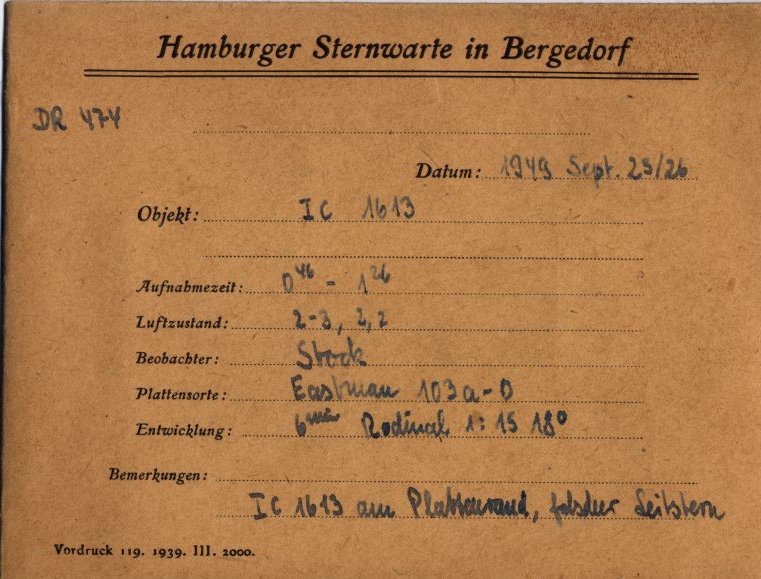 Hamburger Sternwarte in Bergedorf
DR 474
Datum: 1949 Sept. 25/26
Objekt: IC 1613
Aufnahmezeit: 0⁴⁶ - 1²⁶
Luftzustand: 2-3, 2,2
Beobachter: Stock
Plattensorte: Eastman 103a-O
Entwicklung: 6ᵐⁱⁿ Rodinal 1:15 18°
Bemerkungen:
IC 1613 am Plattenrand, falscher Leitstern
Vordruck 119. 1939. III. 2000.